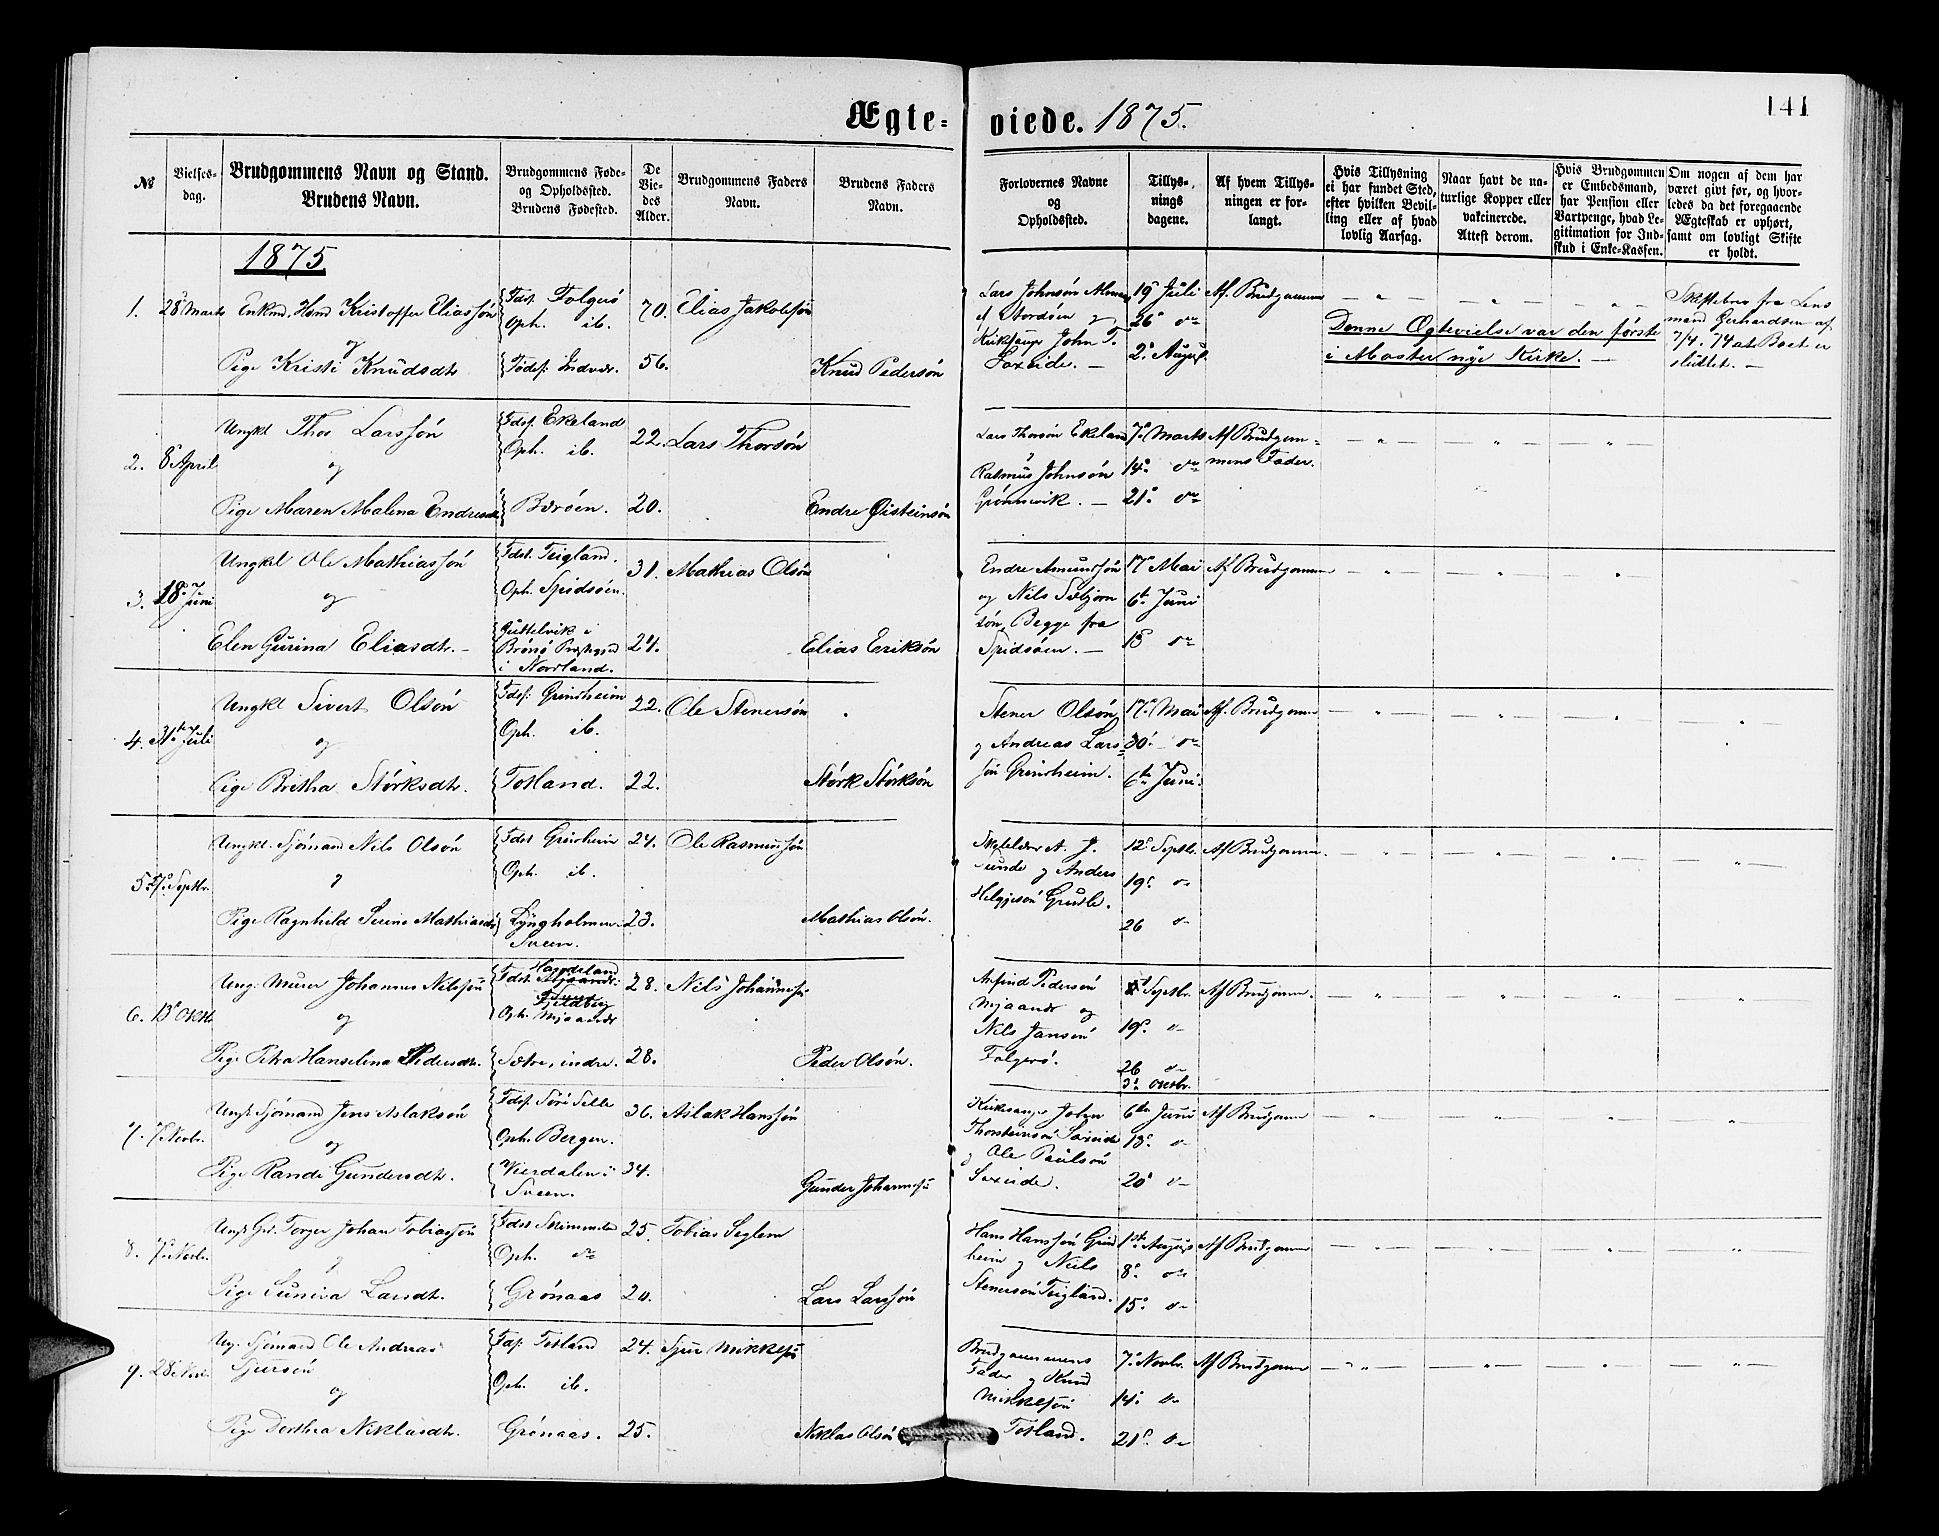 Ægte-viede. 1875.
141
№
Vielses-
dag.
Brudgommens Navn og Stand.
Brudens Navn.
Brudgommens Føde-
og Opholdssted.
Brudens Fødested.
De
Vie-
des
Alder.
Brudgommens Faders
Navn.
Brudens Faders
Navn.
Forlovernes Navne
og
Opholdssted.
Tillys-
nings
dagene.
Af hvem Tillys-
ningen er for-
langt.
Hvis Tillysning
ei har fundet Sted,
efter hvilken Bevil-
ling eller af hvad
lovlig Aarsag.
Naar havt de na-
turlige Kopper eller
vakcinerede.
Attest derom.
Hvis Brudgommen
er Embedsmand,
har Pension eller
Vartpenge, hvad Le-
gitimation for Ind-
skud i Enke-Kassen.
Om nogen af dem har
været givt før, og hvor-
ledes da det foregaaende
Ægteskab er ophørt,
samt om lovligt Skifte
er holdt.
1875
1. 28 Marts Enkmd. Hmd Kristoffer Eliassøn
og
Pige Kristi Knudsdtr
Fdst. Folgerø
Oph. ib.
Fødest: Indvær.
70.
56.
Elias Jakobssøn
Knud Pedersøn
Lars Johnsøn
Kirksanger John T.
Sæxeide. —
19 Juli
26 do
2. August
Af Brudgommen
Denne Ægtevielse var den første
i Moster nye Kirke. —
Skiftebrev fra Lens
mand Gerhardsen af
7/4. 74 at Boet er
sluttet. —
2. 8 April
Ungkl Thos Larssøn
og
Pige Maren Malena Endresdtr
Fdst Ekeland
Oph. ib.
Børøen.
22.
20.
Lars Thorsøn
Endre Øisteinsøn
Lars Thorsøn Ekeland
Rasmus Johnsøn
Grønnevik. —
7. Marts
14. do
21. do
Af Brudgom-
mens Fader.
3. 18 Juni
Ungkl Ole Mathiassøn
og
Elen Gurina Eliasdtr. —
Fdst. Teigland.
Oph. Spidsøen.
Brønø Prstgjd
i Nordland.
31.
24.
Mathias Olsøn
Elias Eriksøn
Endre Amundsøn
og Nils Sæbjørn
søn, Begge fra
Spidsøen. —
17 Mai
6te Juni
13 do
Af Brudgommen
4. 31te Juli
Ungkl Sivert Olsøn
og
Pige Bretha Størksdtr.
Fdst: Grindheim
Oph. ib.
Totland.
22.
22.
Ole Stenersøn
Størk Størksøn
Stener Olsøn
og Andreas Lars-
søn Grindheim.
17. Mai
30. do
6te Juni
Af. Brudgomm
5. Septbr.
Ungkl. Sjømand Nils Olsøn
og
Pige Ragnhild Serine Mathiasdtr
Fdst Grindheim
Oph. ib.
Lyngholmen
Sveen.
24.
23.
Ole Rasmussøn
Mathias Olsøn.
og Anders
Helgesøn
12 Septbr.
19. do
26 do
Af Brudgomm.
6. 13 Oktb.
Ung. Murer Johannes Nilssøn
og
Pige Petra Hanselina Pedersdtr.
Fdst. Handeland
Fjeldberg
Oph. Mjaanæs
Sætre, indre.
28.
28.
Nils Johannessøn
Peder Olsøn.
Arfind Pedersøn
Mjaanæs og
Nils Jansøn
Folgerø.
Septbr.
19. do
26 do
3. Octbr.
Af Brudgomm.
7. 7 Novbr.
Ungk. Sjømand Jens Aslaksøn
og
Pige Randi Gundersdtr.
Fdst. Søre Selle
Oph. Bergen.
Vierdalen i
Sveen.
36.
34.
Aslak Hanssøn
Gunder Johannessøn
Kirksanger John
Thorsteinsøn Sæxeide
og Ole Paulsøn
Sæxeide.
6te Juni
13. do
20 do
Af Brudgomm
8. 7. Novbr.
Ungk Torger Johan Tobiassøn
og
Pige Suniva Larsdtr.
Oph. do
Grønaas
25.
20.
Tobias Seglem
Lars Larssøn
Hans Hanssøn Grind
heim og Nils
Stenersøn Teigland.
1ste August
8. do
15. do
Af Brudgomm
9. 28 Nov.
Ug. Sjømand Ole Andreas
Sjursøn
og
Pige Dorthea Niklasdtr.
Fdst. Totland
Oph. ib.
Grønaas.
24.
25.
Sjur Mikkelsøn
Niklas Olsøn
Brudgommens
Fader og Knud
Mikkelsøn
Totland.
7. Novbr.
14. do
21. do
Af Brudgomm